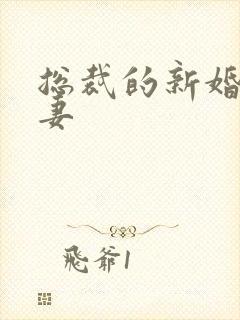 总裁的新婚
妻
飛爺1